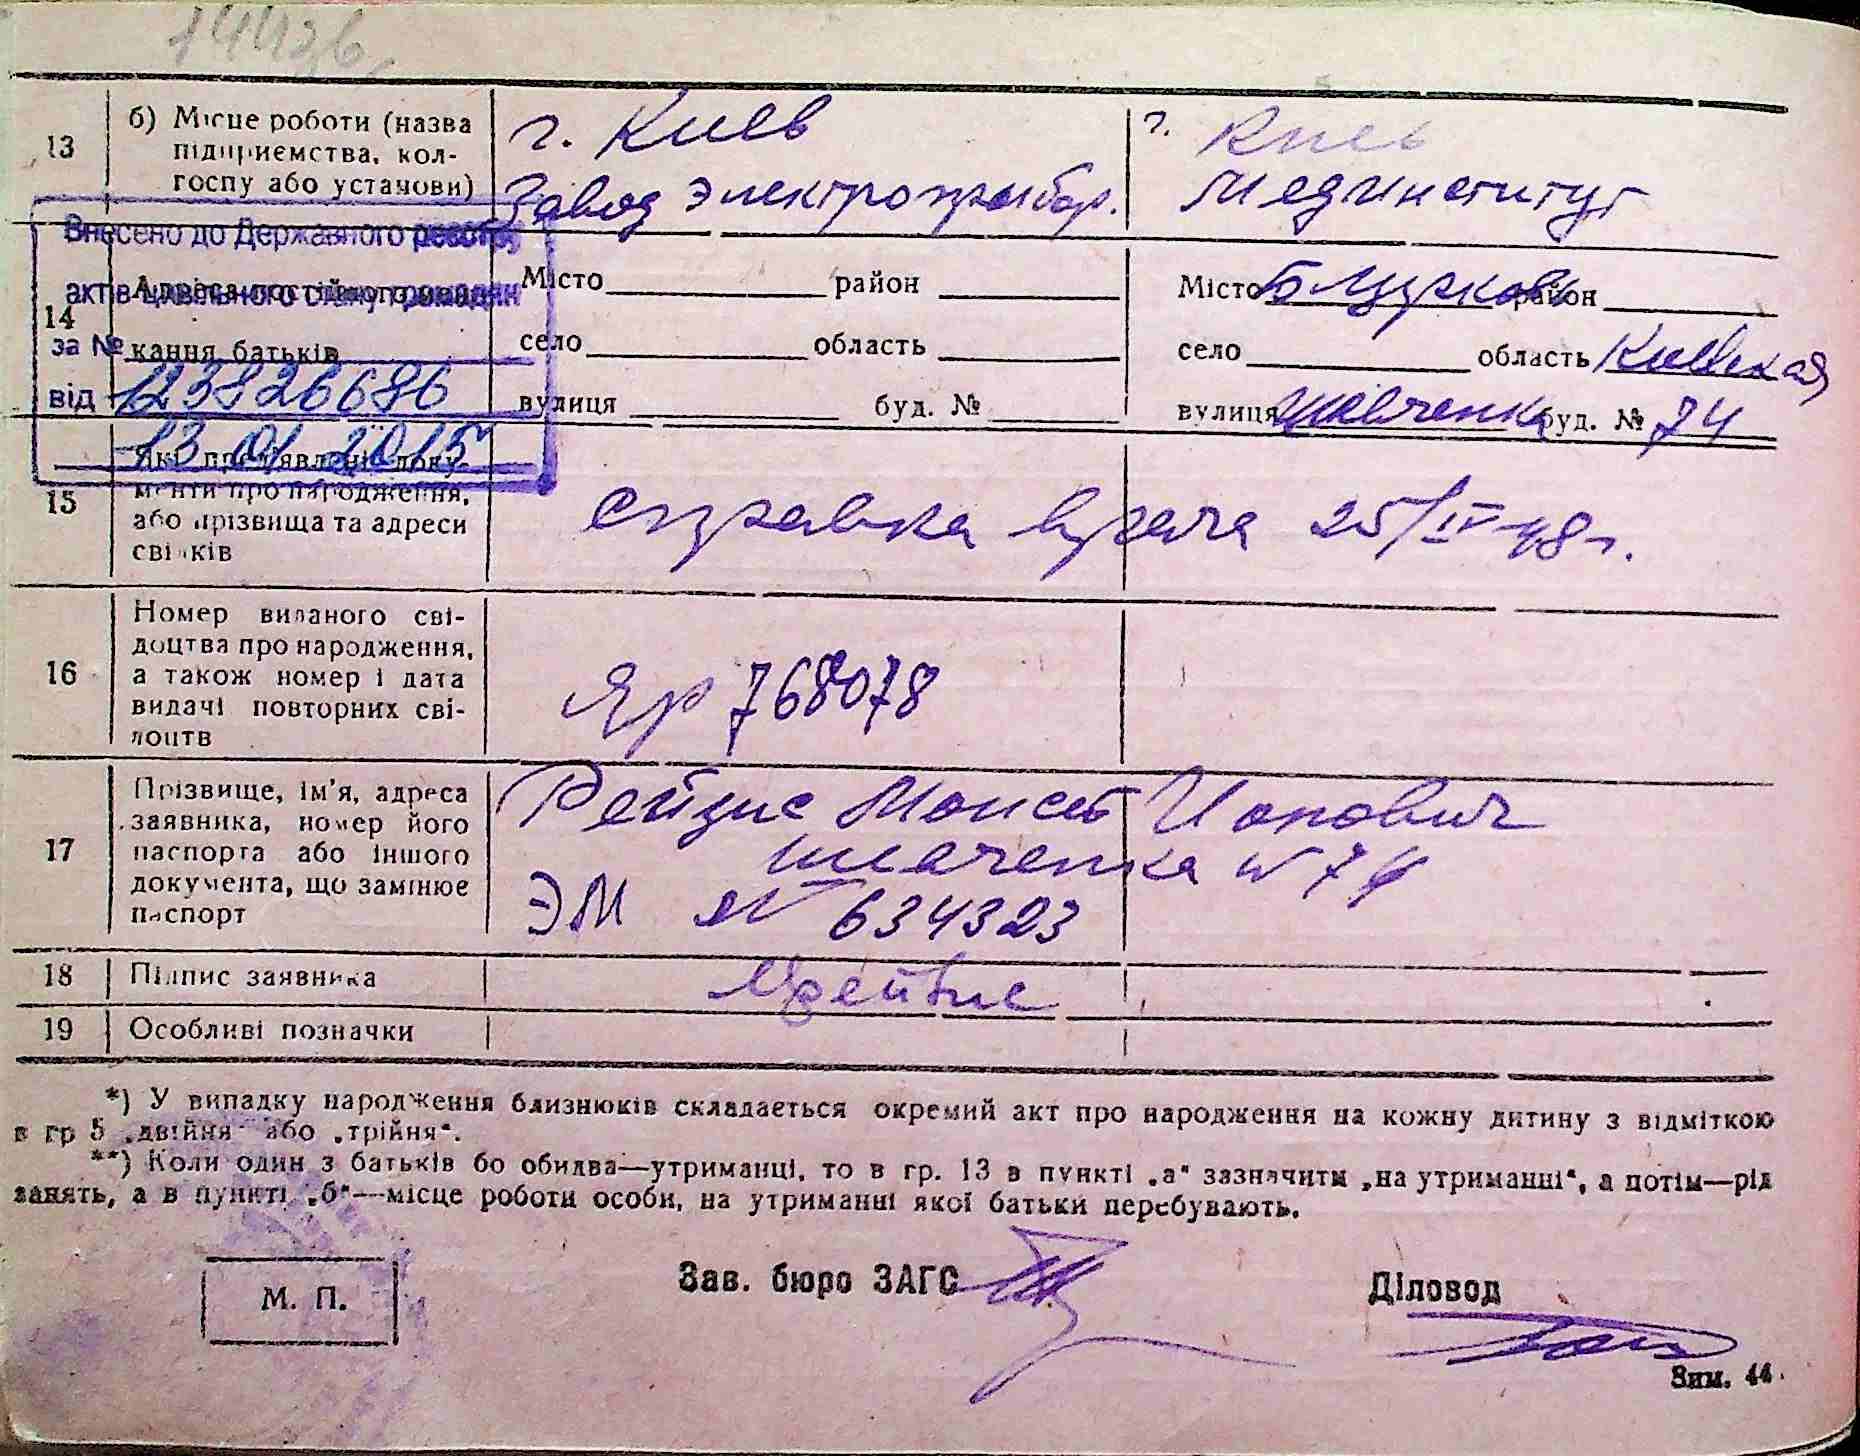 13
б) Місце роботи (назва
підприємства, кол-
госпу або установи)
г. Киев
Завод Электроприбор.
г. Киев
Мединститут
Внесено до Державного реєстру
актів цивільного стану громадян
за №
від 123826686
13 01 2015
14
кання батьків
Місто район
село область
вулиця буд. №
Місто Б Церковь район
село область Киевская
вулиця Шевченка буд. № 74
15
Які пред'явлені доку-
менти про народження,
або прізвища та адреси
свідків
справка врача 25/IV-48 г.
16
Номер виданого сві-
доцтва про народження,
а також номер і дата
видачі повторних сві-
доцтв
Яр 768078
17
Прізвище, ім'я, адреса
заявника, номер його
паспорта або іншого
документа, що замінює
паспорт
Рейзис Моисей
№ 74
ЭМ № 634323
18
Підпис заявника
19
Особливі позначки
*) У випадку народження близнюків складається окремий акт про народження на кожну дитину з відміткою
в гр 5 „двійня" або „трійня".
**) Коли один з батьків бо обидва—утриманці, то в гр. 13 в пункті „а" зазначити „на утриманні", а потім—рід
занять, а в пункті „б"—місце роботи особи, на утриманні якої батьки перебувають.
М. П.
Зав. бюро ЗАГС
Діловод
Зим. 44.